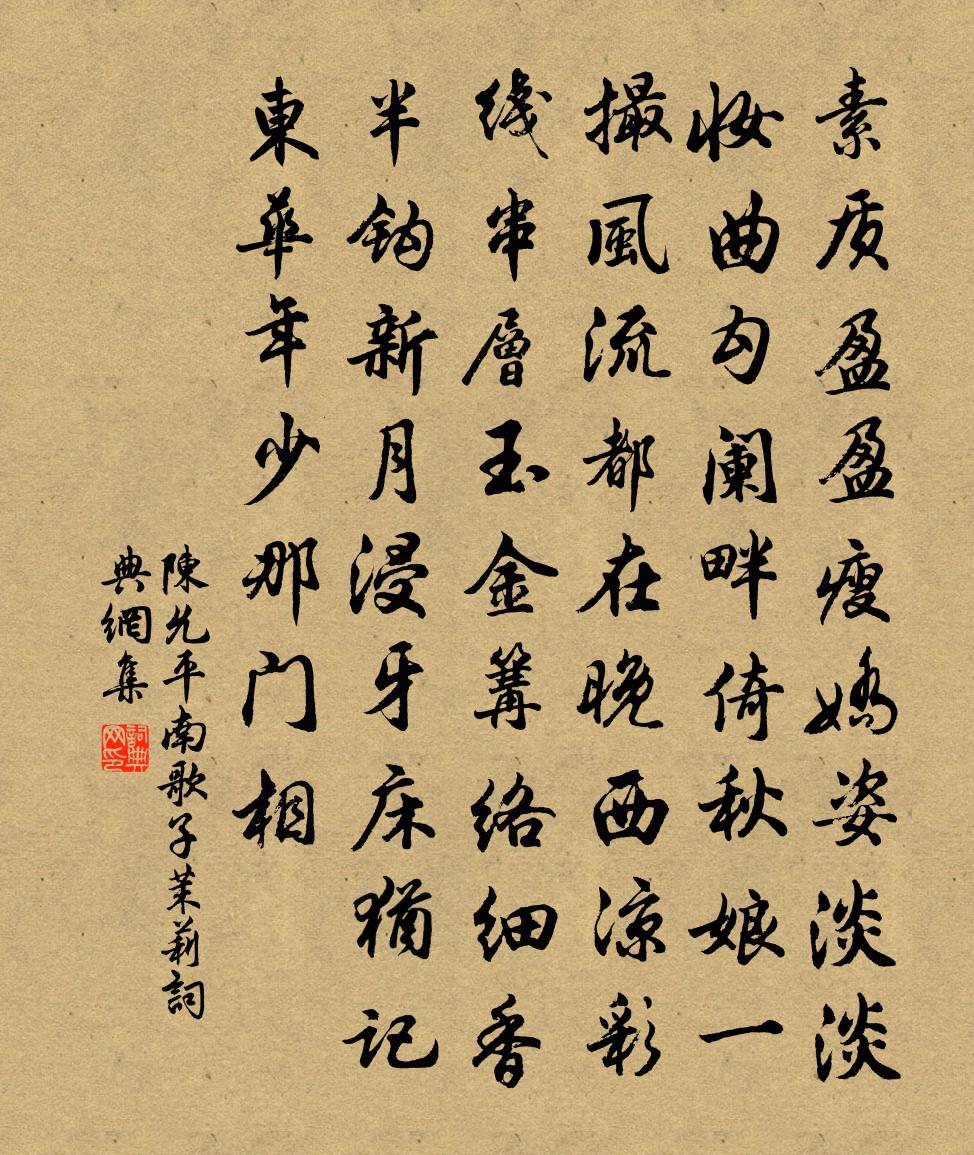 素质盈盈瘦娇姿淡淡
妆曲勾阑畔倚秋娘一
撮風流都在晚西凉彩
线串層玉金篝络细香
半钩新月浸牙床猶记
東華年少那门相
陳允平南歌子茉莉詞
典網集
詞典网印